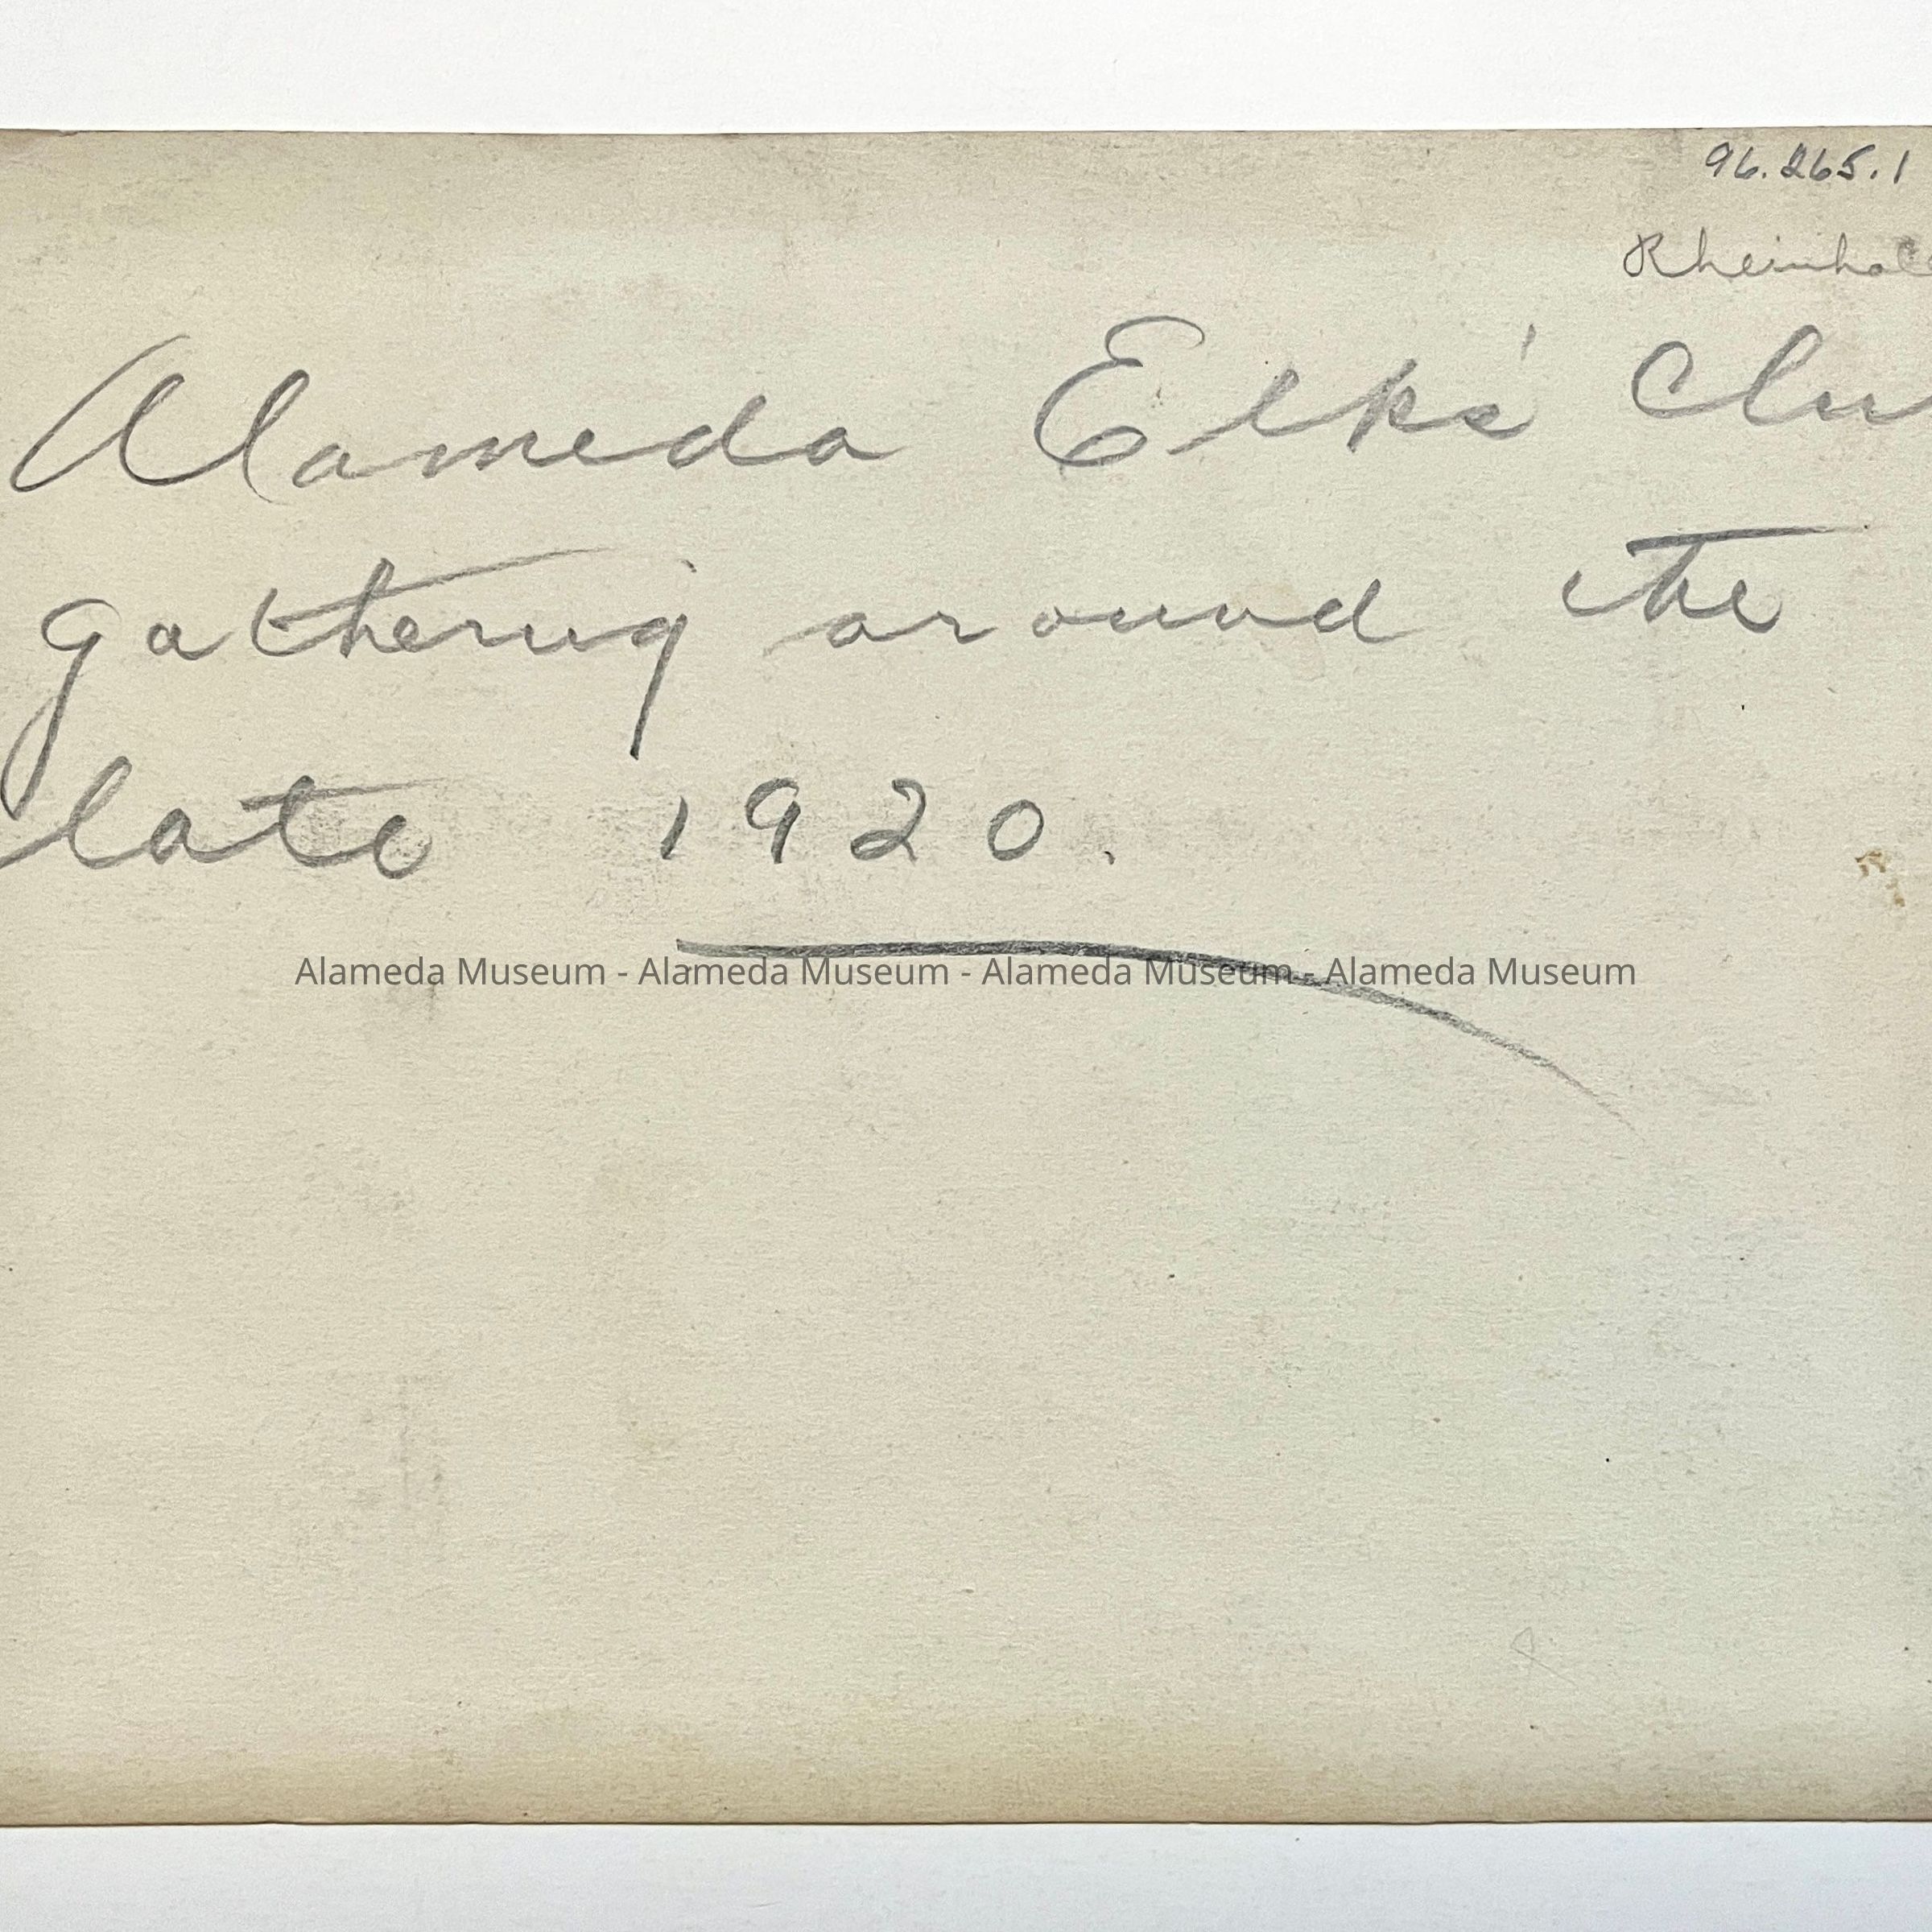 96.265.1
Alameda Elks' Clu
gathering around the
late 1920.
Alameda Museum - Alameda Museum - Alameda Museum - Alameda Museum